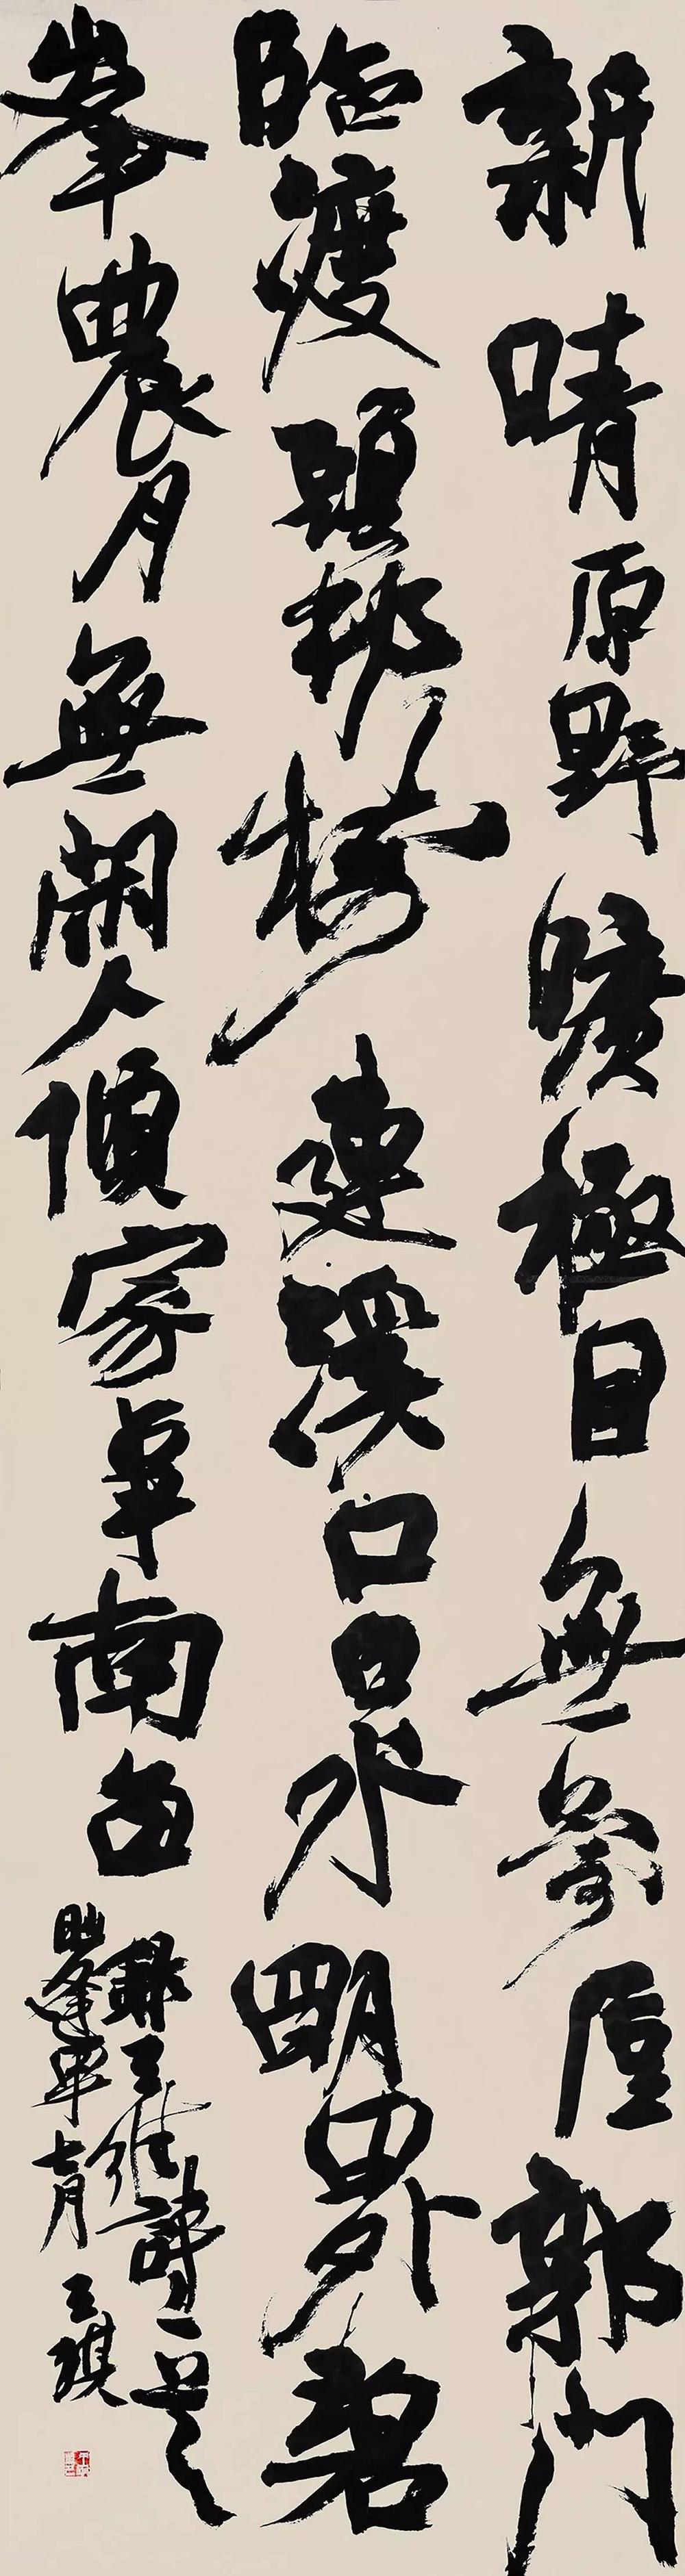 新晴原野曠極目無氛垢郭門
臨渡頭村樹連溪口白水明田外碧
峯農月無閑人傾家事南畝
錄王維詩一首
七月 王